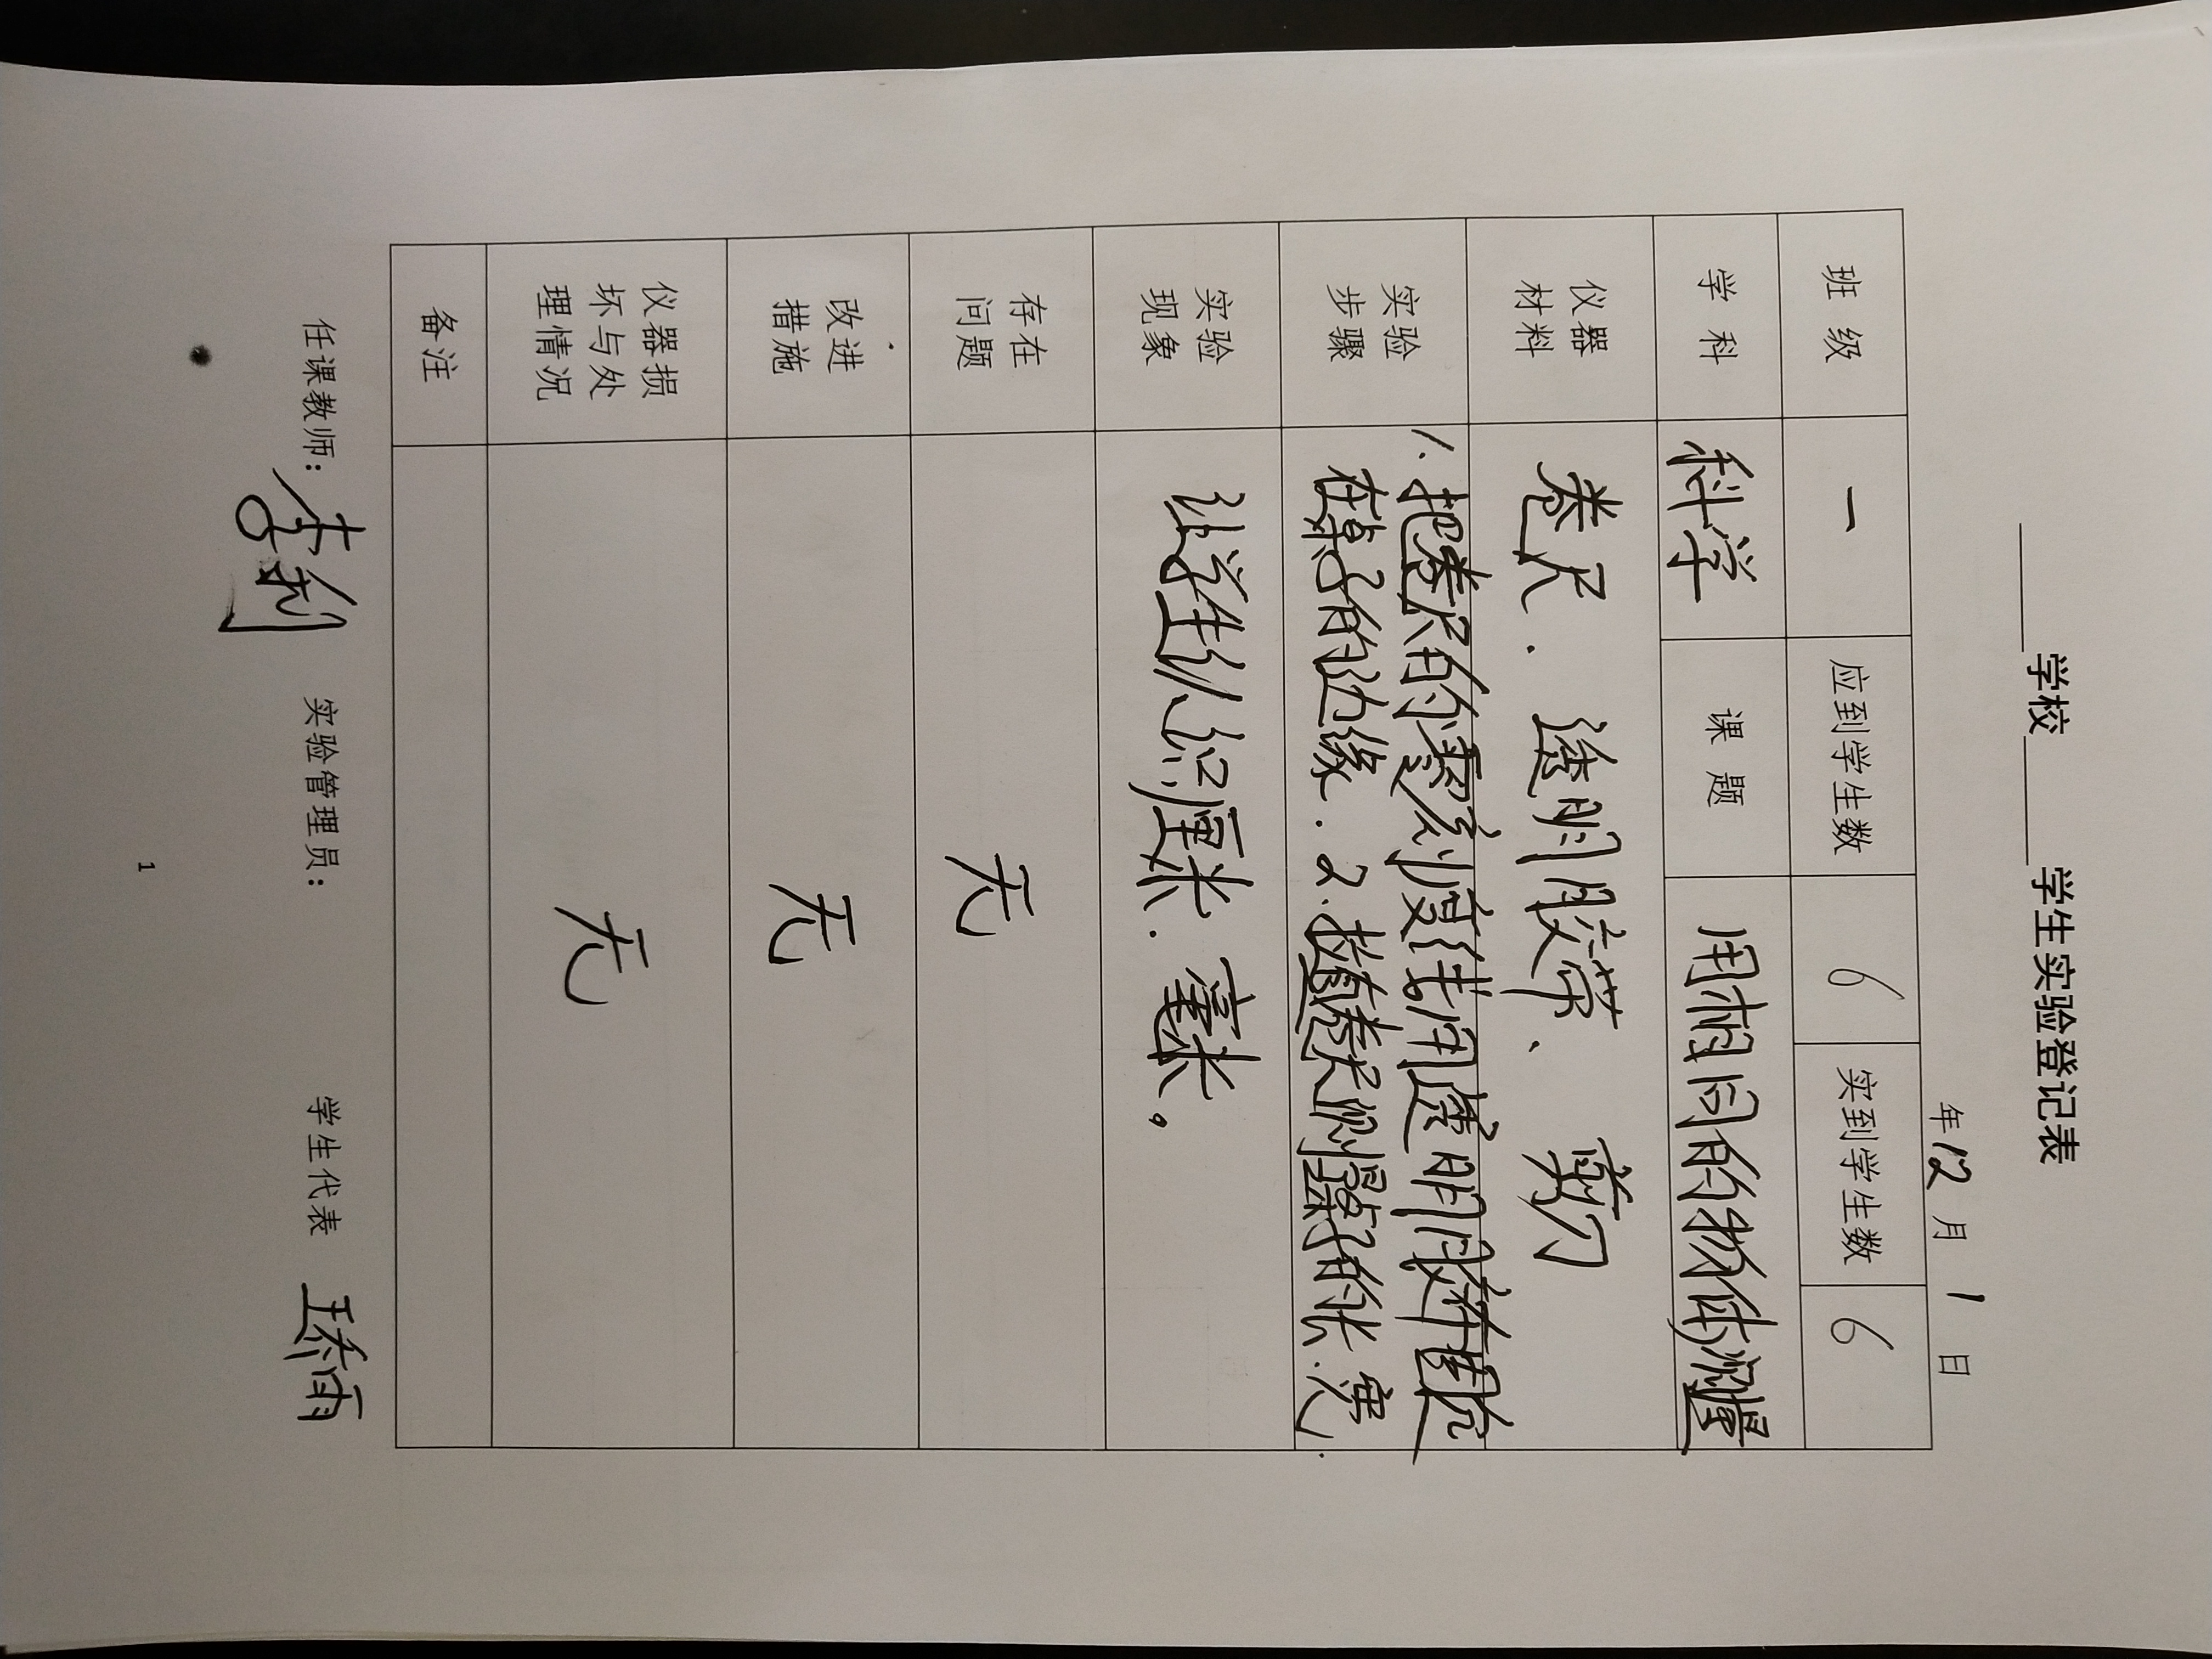 ____学校____学生实验登记表
年12月1日
班 级 一 应到学生数 6 实到学生数 6
学 科 科学 课 题 用相同的物体测量
仪器材料 卷尺. 透明胶带、 剪刀
实验步骤 1.把卷尺的零刻度线用透明胶带固定
在桌子的边缘.2.拉直卷尺测量桌子的长.宽.
实验现象 让学生认识厘米.毫米。
存在问题 无
改进措施 无
仪器损坏与处理情况 无
备注
任课教师: 李利 实验管理员: 学生代表 雨
1